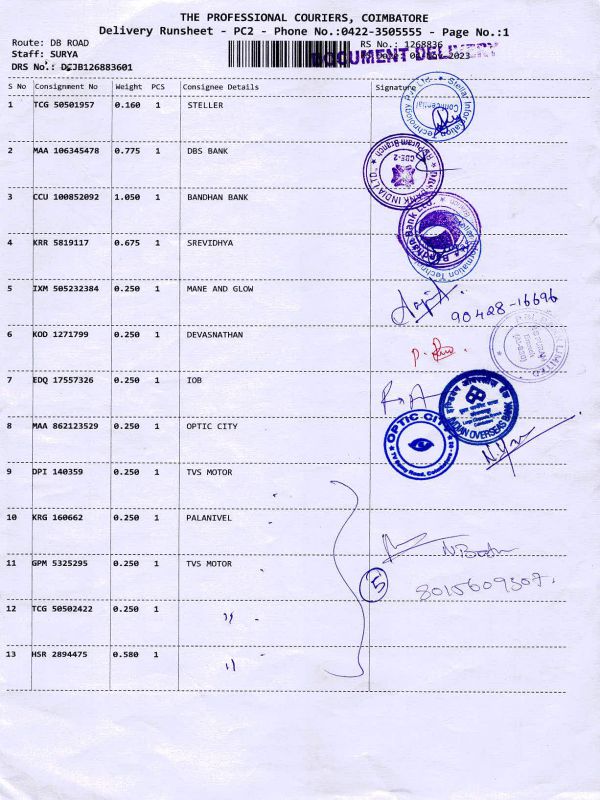 THE PROFESSIONAL COURIERS, COIMBATORE
Delivery Runsheet - PC2 - Phone No.:0422-3505555 - Page No.:1
Route: DB ROAD
RS No.: 1268836
Staff: SURYA
DOCUMENT DELIVERY
2023
DRS No.: DCJB126883601
S No Consignment No Weight PCS Consignee Details Signature
1 TCG 50501957 0.160 1 STELLER
2 MAA 106345478 0.775 1 DBS BANK
3 CCU 100852092 1.050 1 BANDHAN BANK
4 KRR 5819117 0.675 1 SREVIDHYA
5 IXM 505232384 0.250 1 MANE AND GLOW
90428-16696
6 KOD 1271799 0.250 1 DEVASNATHAN
7 EDQ 17557326 0.250 1 IOB
INDIAN OVERSEAS BANK
8 MAA 862123529 0.250 1 OPTIC CITY
OPTIC CITY
9 DPI 140359 0.250 1 TVS MOTOR
10 KRG 160662 0.250 1 PALANIVEL
11 GPM 5325295 0.250 1 TVS MOTOR
5
8015609307.
12 TCG 50502422 0.250 1 "
13 HSR 2894475 0.580 1 "